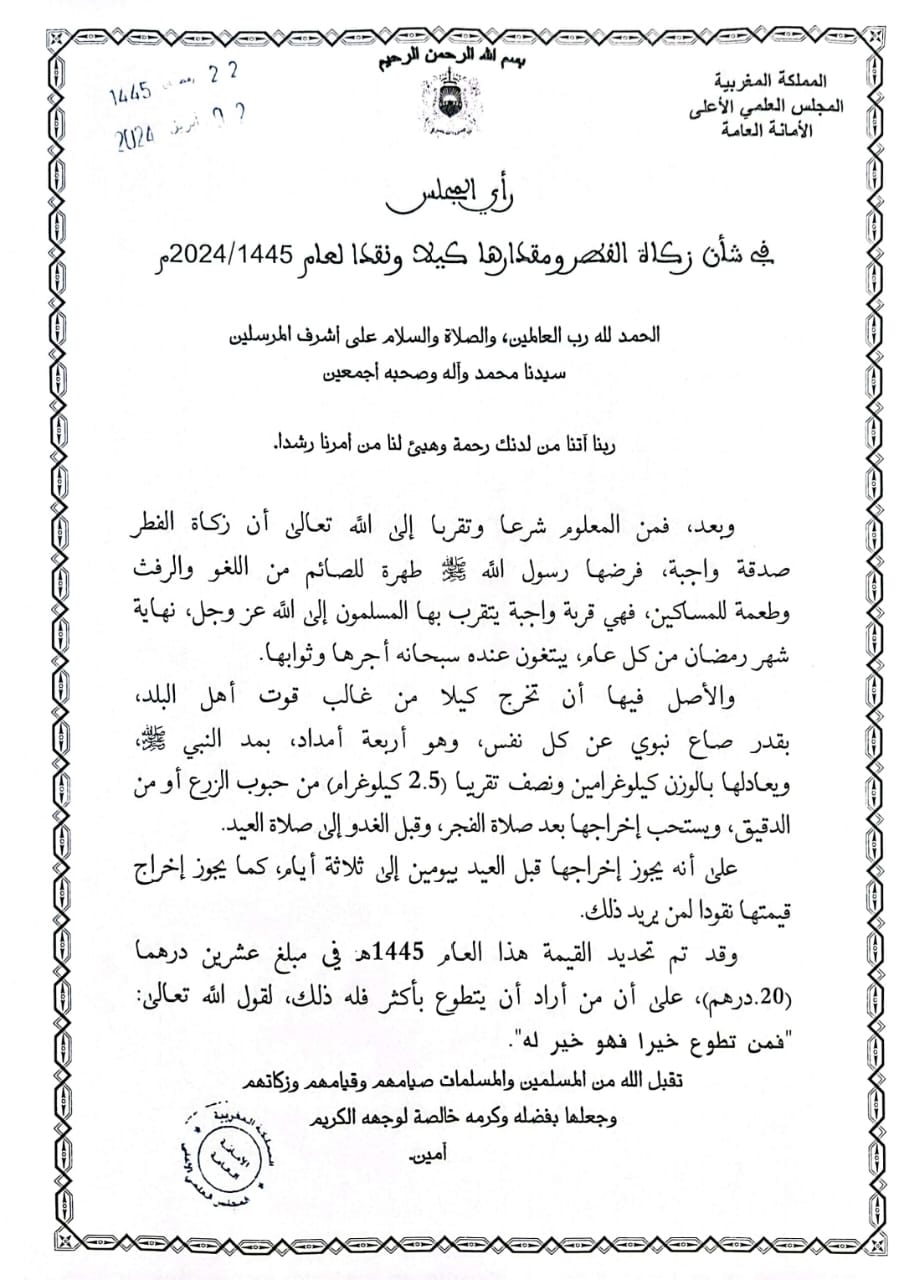 بسم الله الرحمن الرحيم
المملكة المغربية
المجلس العلمي الأعلى
الأمانة العامة
22 رمضان 1445
02 أبريل 2024
رأي المجلس
في شأن زكاة الفطر ومقدارها كيلا ونقدا لعام 2024/1445م
الحمد لله رب العالمين، والصلاة والسلام على أشرف المرسلين
سيدنا محمد وآله وصحبه أجمعين
ربنا آتنا من لدنك رحمة وهيئ لنا من أمرنا رشدا.
وبعد، فمن المعلوم شرعا وتقربا إلى الله تعالى أن زكاة الفطر
صدقة واجبة، فرضها رسول الله ﷺ طهرة للصائم من اللغو والرفث
وطعمة للمساكين، فهي قربة واجبة يتقرب بها المسلمون إلى الله عز وجل، نهاية
شهر رمضان من كل عام، يبتغون عنده سبحانه أجرها وثوابها.
والأصل فيها أن تخرج كيلا من غالب قوت أهل البلد،
بقدر صاع نبوي عن كل نفس، وهو أربعة أمداد، بمد النبي ﷺ،
ويعادلها بالوزن كيلوغرامين ونصف تقريبا (2.5 كيلوغرام) من حبوب الزرع أو من
الدقيق، ويستحب إخراجها بعد صلاة الفجر، وقبل الغدو إلى صلاة العيد.
على أنه يجوز إخراجها قبل العيد بيومين إلى ثلاثة أيام، كما يجوز إخراج
قيمتها نقودا لمن يريد ذلك.
وقد تم تحديد القيمة هذا العام 1445هـ في مبلغ عشرين درهما
(20.درهم)، على أن من أراد أن يتطوع بأكثر فله ذلك، لقول الله تعالى:
"فمن تطوع خيرا فهو خير له".
تقبل الله من المسلمين والمسلمات صيامهم وقيامهم وزكاتهم
وجعلها بفضله وكرمه خالصة لوجهه الكريم
أمين.
المملكة المغربية
المجلس العلمي الأعلى
الأمانة
العامة